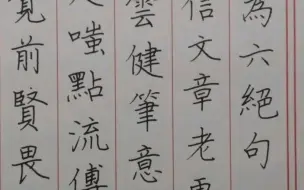 為六絕句
信文章老更
雲健筆意
嗤點流傳
覺前賢畏